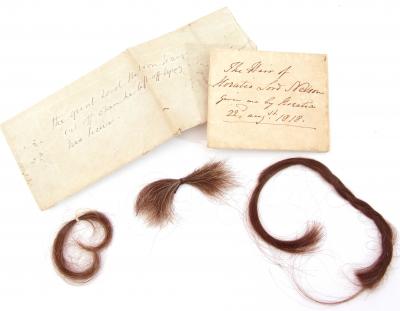 the great Lord Nelson's hair
cut off when he left off tying
his
The Hair of
Horatio Lord Nelson
given me by Horatia
22. augst 1818.